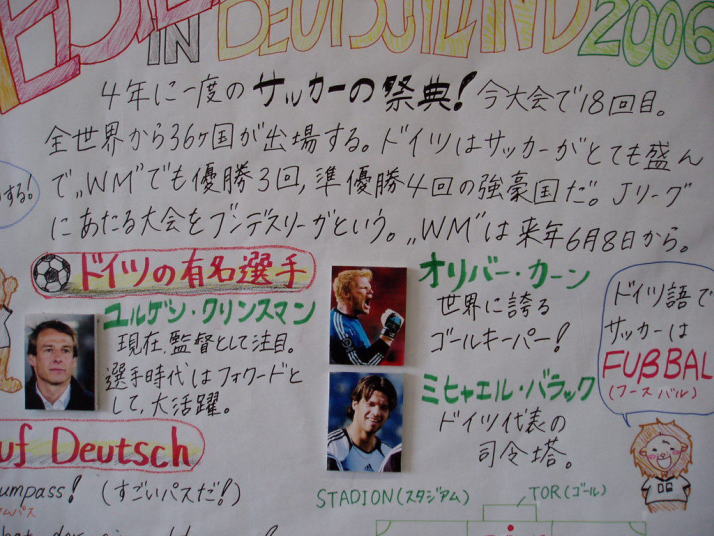 IN DEUTSCHLAND 2006
4年に一度のサッカーの祭典!今大会で18回目。
全世界から36ヶ国が出場する。ドイツはサッカーがとても盛ん
で„WM"でも優勝3回,準優勝4回の強豪国だ。Jリーグ
にあたる大会をブンデスリーガという。„WM"は来年6月8日から。
する!
ドイツの有名選手
ユルゲン・クリンスマン
現在,監督として注目。
選手時代はフォワードと
して,大活躍。
オリバー・カーン
世界に誇る
ゴールキーパー!
ミヒャエル・バラック
ドイツ代表の
司令塔。
ドイツ語で
サッカーは
FUßBAL
(フースバル)
uf Deutsch
umpass! (すごいパスだ!)
ムパス
STADION(スタジアム)
TOR(ゴール)